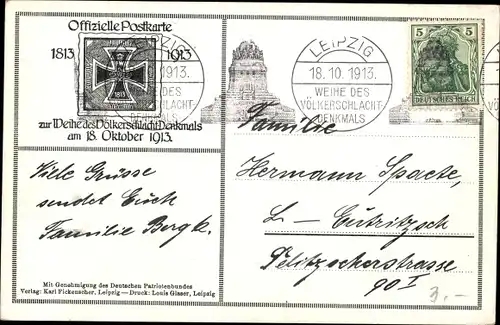 Offizielle Postkarte
1813 1913
1813
zur Weihe des Völkerschlacht-Denkmals
am 18. Oktober 1913.
LEIPZIG
1913.
WEIHE DES
VÖLKERSCHLACHT-
DENKMALS
LEIPZIG
18.10.1913.
WEIHE DES
VÖLKERSCHLACHT-
DENKMALS
5 5
DEUTSCHES REICH
Viele Grüsse
sendet Euch
Familie Bergk.
Familie
Hermann Spaete,
L – Eutritzsch
Delitzscherstrasse
90 I
3.-
Mit Genehmigung des Deutschen Patriotenbundes
Verlag: Karl Fickenscher, Leipzig — Druck: Louis Glaser, Leipzig